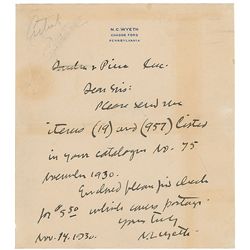 N. C. WYETH
CHADDS FORD
PENNSYLVANIA
Inc.
Dear Sirs:
Please send me
items (19) and (957) listed
in your catalogue No. 75
November 1930.
Enclosed please find check
for $5.50 which covers postage.
Yours truly
Nov. 14. 1930. N. C. Wyeth